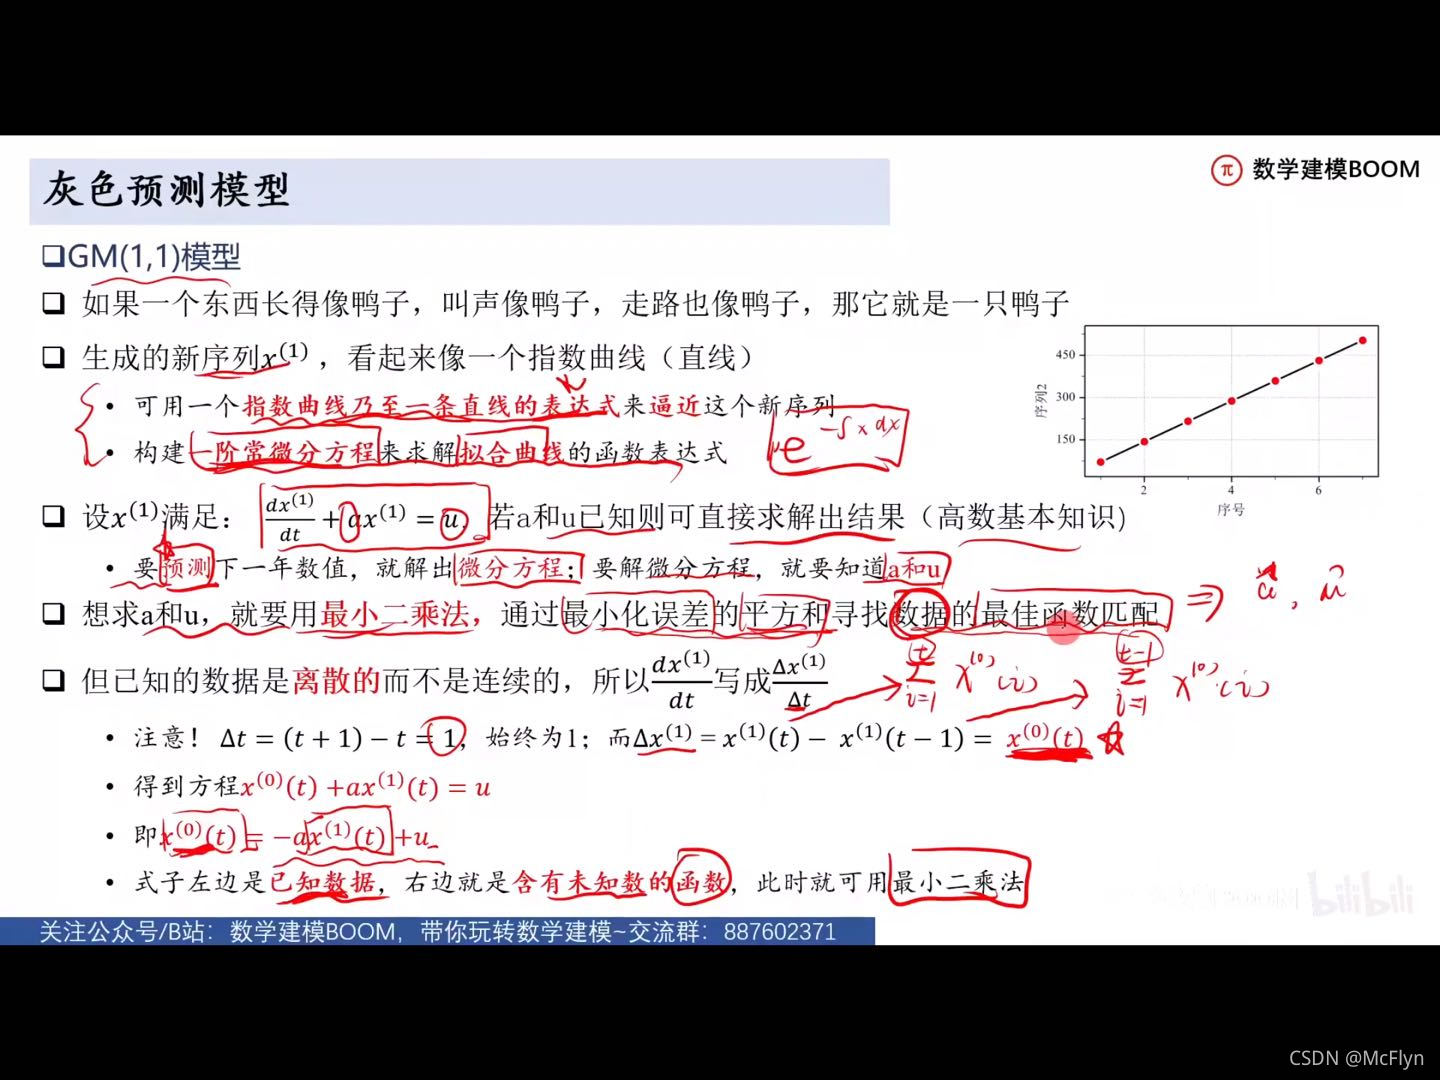 灰色预测模型
π 数学建模BOOM
❑GM(1,1)模型
❑ 如果一个东西长得像鸭子，叫声像鸭子，走路也像鸭子，那它就是一只鸭子
❑ 生成的新序列x⁽¹⁾，看起来像一个指数曲线（直线）
• 可用一个指数曲线乃至一条直线的表达式来逼近这个新序列
• 构建一阶常微分方程来求解拟合曲线的函数表达式
e^{-∫x dx}
序列2
450
300
150
2 4 6
序号
❑ 设x⁽¹⁾满足：dx⁽¹⁾/dt + ax⁽¹⁾ = u，若a和u已知则可直接求解出结果（高数基本知识）
• 要预测下一年数值，就解出微分方程；要解微分方程，就要知道a和u
❑ 想求a和u，就要用最小二乘法，通过最小化误差的平方和寻找数据的最佳函数匹配
⇒ â, û
❑ 但已知的数据是离散的而不是连续的，所以dx⁽¹⁾/dt写成Δx⁽¹⁾/Δt
t Σ i=1 x⁽⁰⁾(i) t-1 Σ i=1 x⁽⁰⁾(i)
• 注意！Δt = (t + 1) − t = 1，始终为1；而Δx⁽¹⁾ = x⁽¹⁾(t) − x⁽¹⁾(t − 1) = x⁽⁰⁾(t)
• 得到方程x⁽⁰⁾(t) + ax⁽¹⁾(t) = u
• 即x⁽⁰⁾(t) = −ax⁽¹⁾(t) + u
• 式子左边是已知数据，右边就是含有未知数的函数，此时就可用最小二乘法
bilibili
关注公众号/B站：数学建模BOOM，带你玩转数学建模~交流群：887602371
CSDN @McFlyn